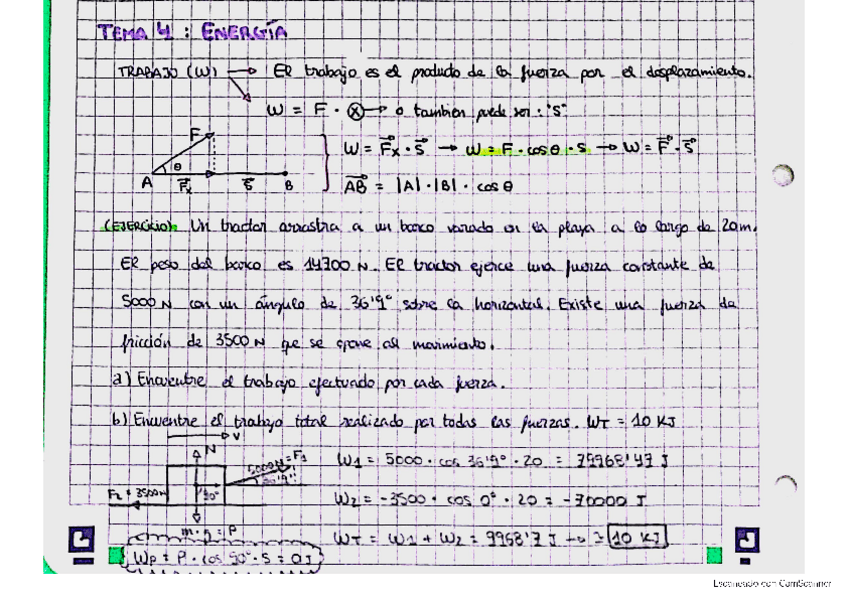 TEMA 4 : ENERGÍA
TRABAJO (W) → El trabajo es el producto de la fuerza por el desplazamiento.
W = F · (x) → o tambien puede ser : "S"
F
θ
A F⃗x S⃗ B
W = F⃗x · S⃗ → W = F · cos θ · S → W = F⃗ · S⃗
AB⃗ = |A| · |B| · cos θ
(EJERCICIO) Un tractor arrastra a un barco varado en la playa a lo largo de 20m.
El peso del barco es 14700 N. El tractor ejerce una fuerza constante de
5000 N con un ángulo de 36'9° sobre la horizontal. Existe una fuerza de
fricción de 3500 N que se opone al movimiento.
a) Encuentre el trabajo efectuado por cada fuerza.
b) Encuentre el trabajo total realizado por todas las fuerzas. WT = 10 KJ
V
N
5000N = F1
36'9°
F2 = 3500N
90°
m · g = P
WP = P · cos 90° · S = 0 J
W1 = 5000 · cos 36'9° · 20 = 79968'47 J
W2 = -3500 · cos 0° · 20 = -70000 J
WT = W1 + W2 = 9968'7 J → ≃ 10 KJ
Escaneado con CamScanner